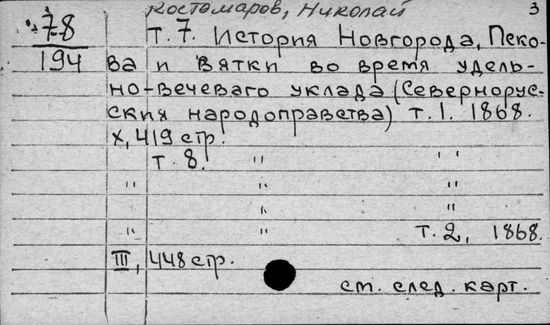 Костомаров, Николай 3
78 Т. 7. История Новгорода, Пско-
194 ва и Вятки во время удель-
но-вечеваго уклада (Севернорус-
ския народоправства) т. 1. 1868.
X, 419 стр.
т. 8. " "
" " "
" "
" " т. 2, 1868.
III, 448 стр.
см. след. карт.